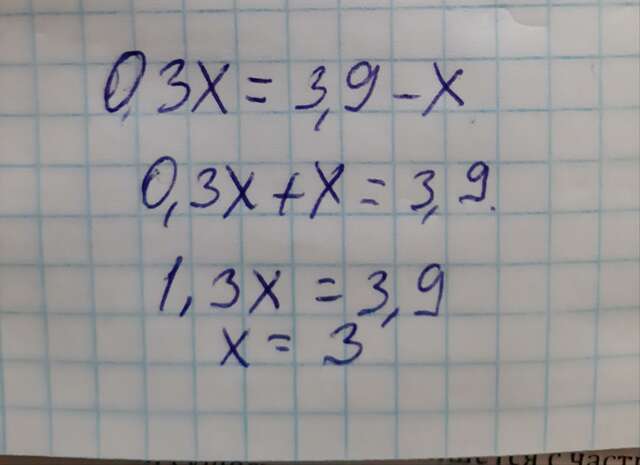 0,3x = 3,9 - x
0,3x + x = 3,9.
1,3x = 3,9
x = 3
с части